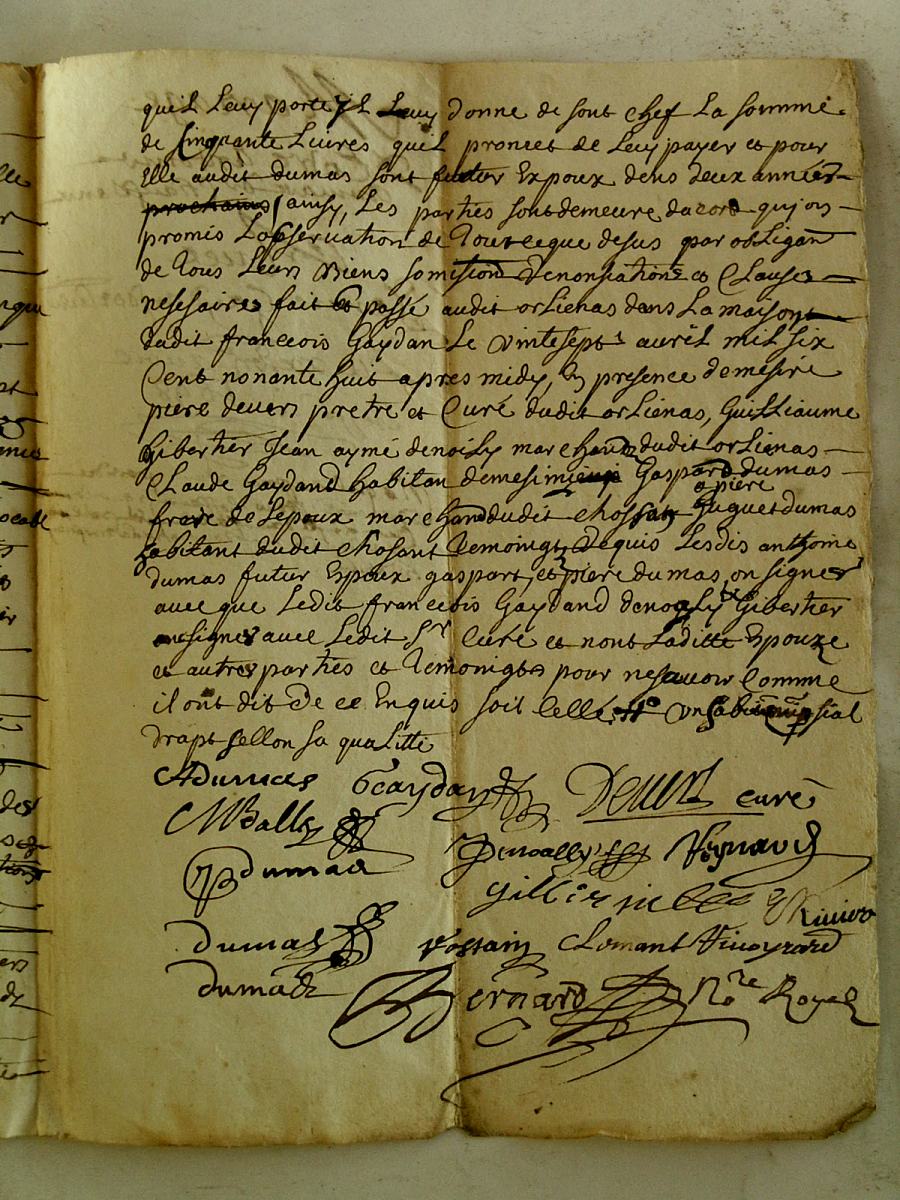 quil Luy porte yl Luy donne de sont chef La somme
de Cinquante Livres quil promet de Luy payer et pour
Elle audit dumas sont futur Expoux dens deux années
prochaines ainsy, Les parties sont demeure dacord qui on
promis Lobservation de Tout ceque desus par obligan
de Tous Leurs Biens somission Renonsiations et Clauses
nesesaires fait et passé audit orLienas dans La maison
dudit francois Gaydan Le vintesept avril mil six
Cent nonante huit apres midy, En presence de mesire
piere devers pretre et Curé dudit orLienas, Guilliaume
Gibertier Jean aymé denoily marchand dudit orLienas
Claude Gaydand habitan de mesimieux Gaspard dumas
o piere
frere de Lepoux marchand dudit chossan huguet dumas
habitant dudit chosant Temoingt, Dequis Lesdis anthoine
dumas futur Expoux gaspart, et piere dumas, on signer
avecque Ledit francois Gaydand denoally Gibertier
on signer avec Ledit Sr Curé et nont Laditte Epouze
et autres parties et Temoingts pour nesavoir Comme
il ont dit De ce Enquis soit Cellé un habit nuptial
drapt sellon sa qualitte
ADumas Gaydan Devers curé
CMBally
Dumas Denoally Reynaud
Riviere
Dumas Clemant Vincyrard
dumas Bernard Nore Royal